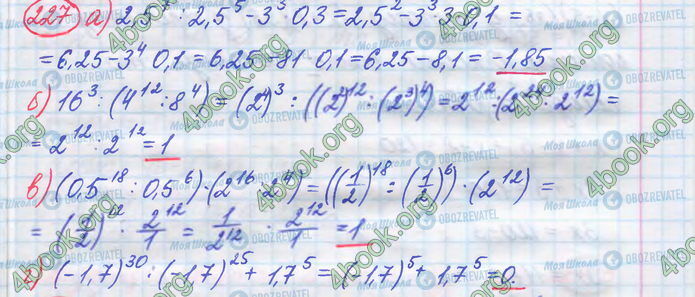 227 а) 2,5⁷ : 2,5⁵ - 3³ · 0,3 = 2,5² - 3³ · 3 · 0,1 =
= 6,25 - 3⁴ · 0,1 = 6,25 - 81 · 0,1 = 6,25 - 8,1 = -1,85
б) 16³ : (4¹² : 8⁴) = (2⁴)³ : ((2²)¹² : (2³)⁴) = 2¹² : (2²⁴ : 2¹²) =
= 2¹² : 2¹² = 1
в) (0,5¹⁸ : 0,5⁶) · (2¹⁶ : 2⁴) = ((1/2)¹⁸ : (1/2)⁶) · (2¹²) =
= (1/2)¹² · 2¹²/1 = 1/2¹² · 2¹²/1 = 1
г) (-1,7)³⁰ : (-1,7)²⁵ + 1,7⁵ = (-1,7)⁵ + 1,7⁵ = 0.
4book.org
Моя Школа
OBOZREVATEL